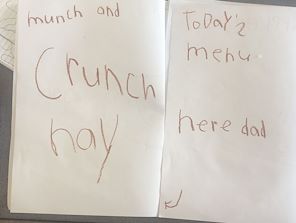 munch and
Crunch
hay
ToDay's
menu
here dad